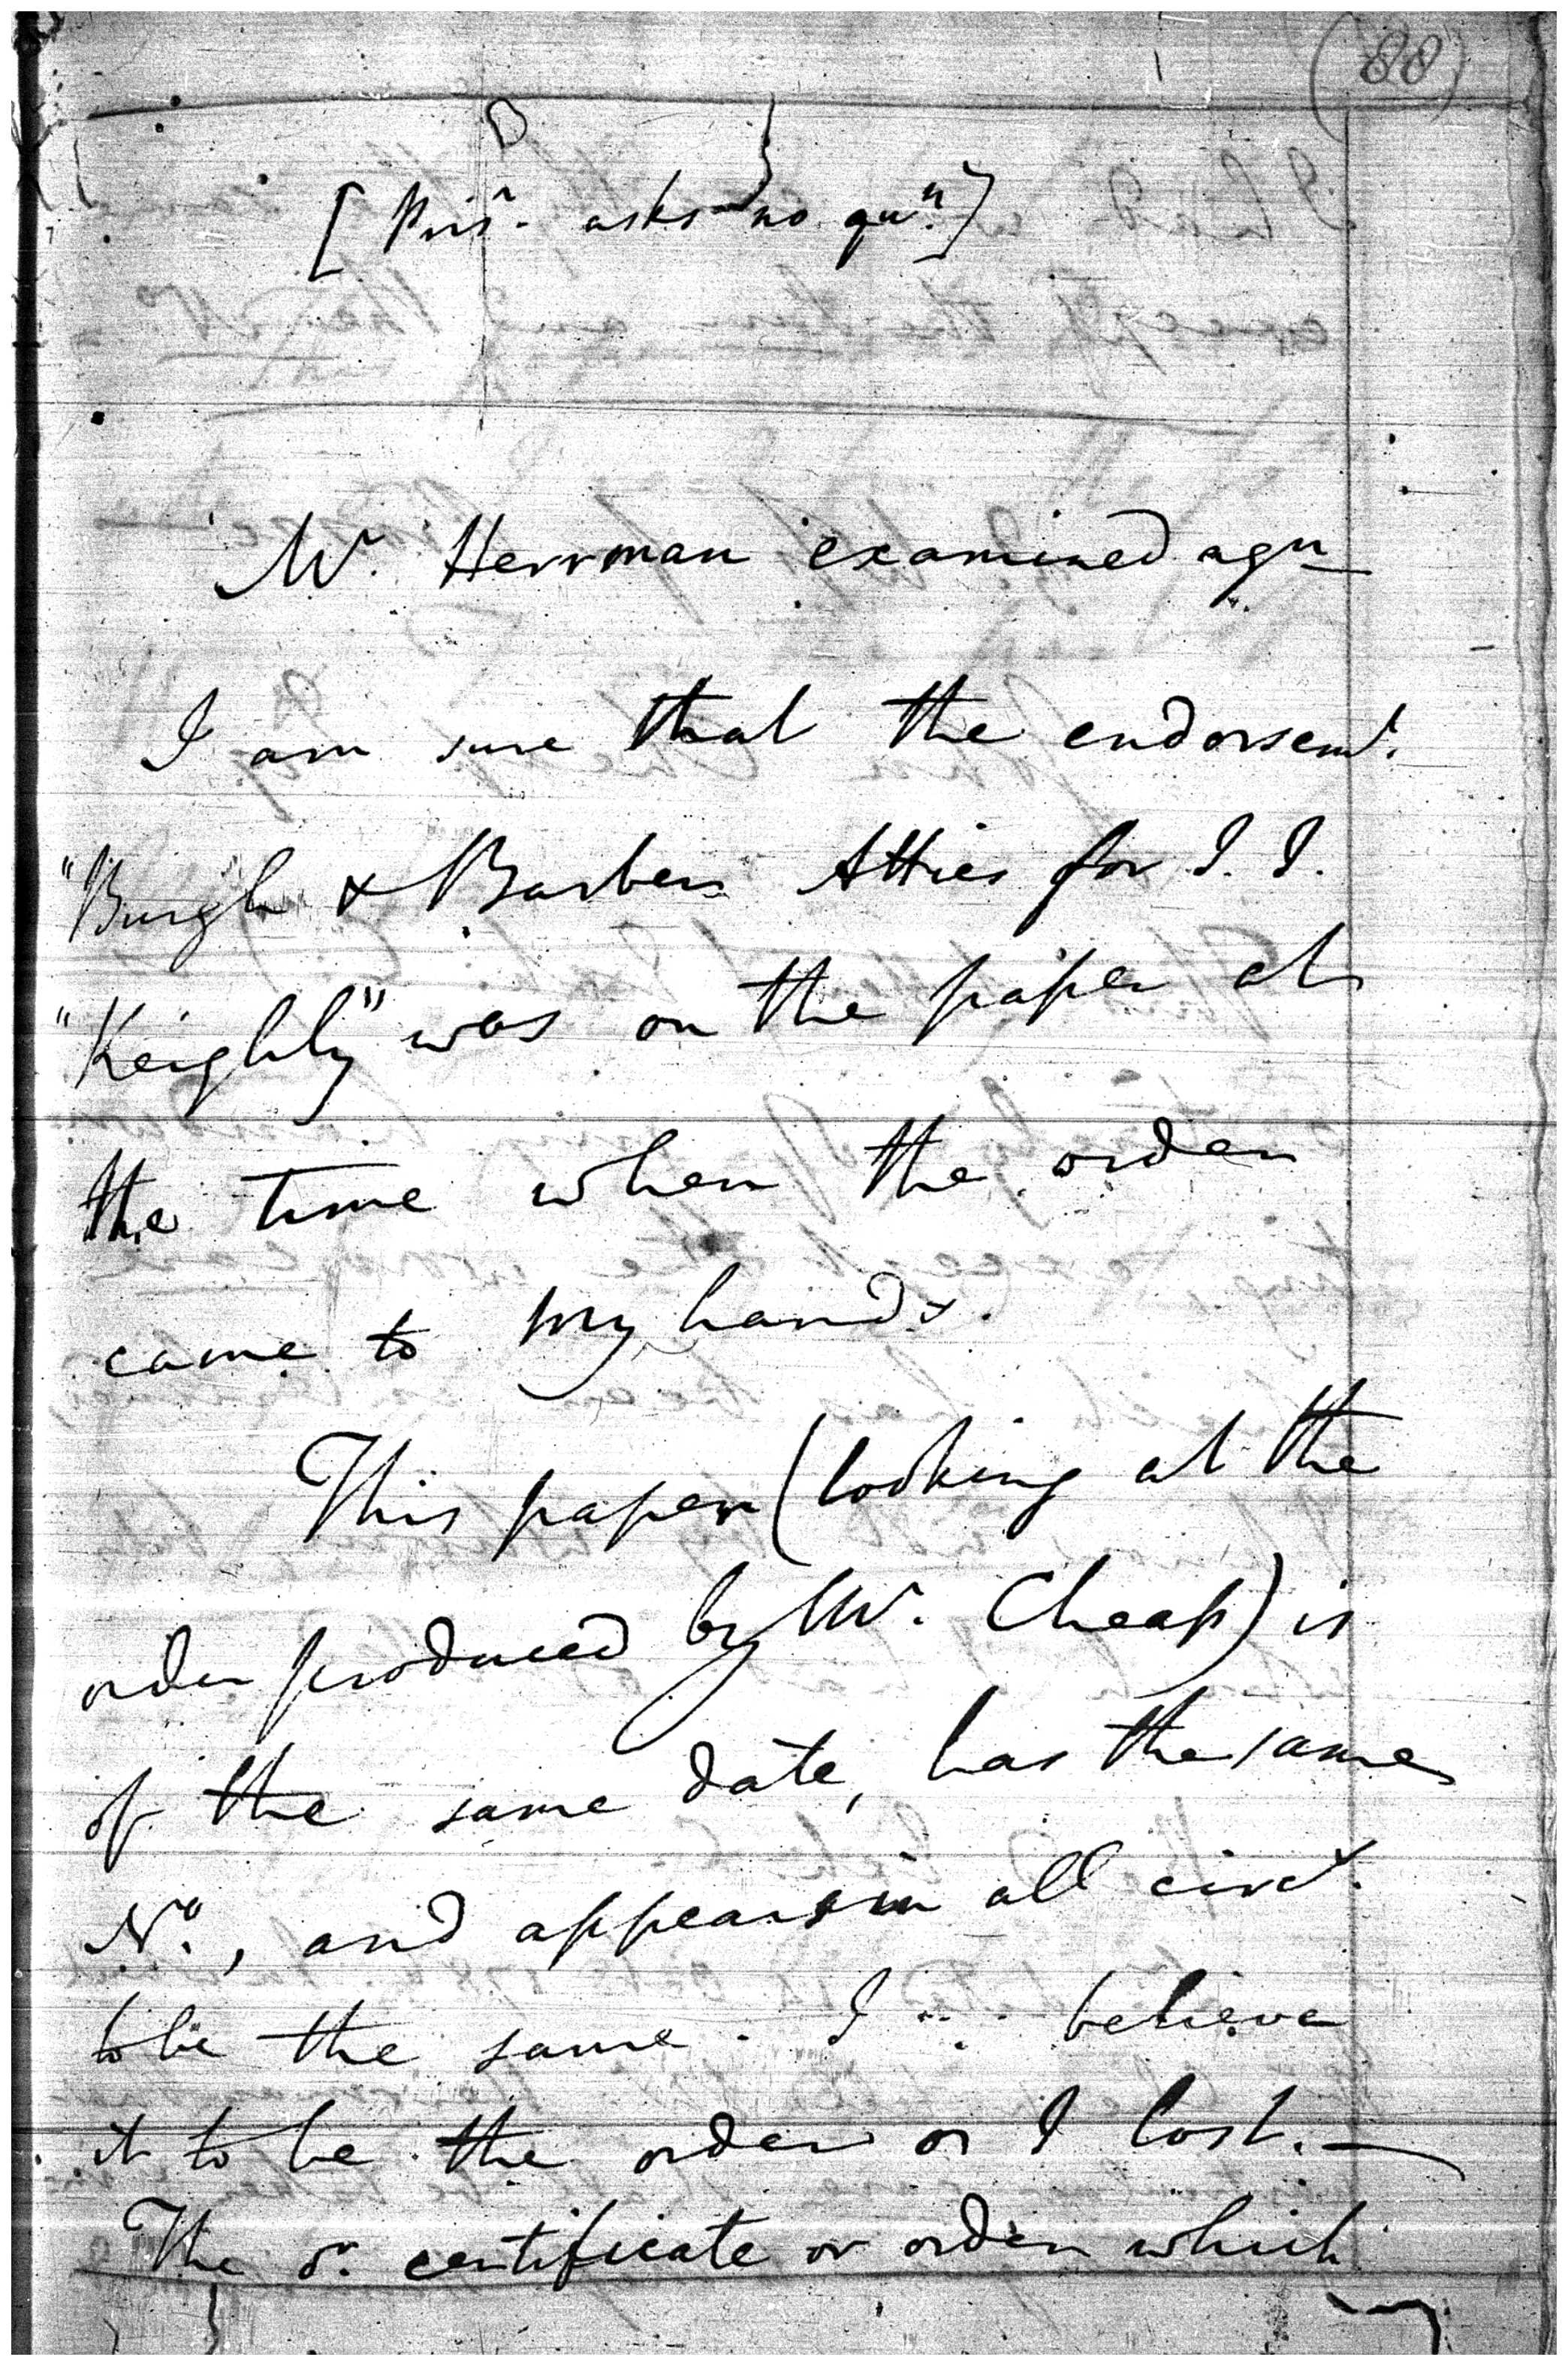 (88)
[Prisr. asks no qun.]
Mr. Herrman examined agn
I am sure that the endorsemt.
"Burgh & Barber Atties for I. I.
"Keighly" was on the paper at
the time when the order
came to my hands.
This paper (looking at the
order produced by Mr. Cheap) is
of the same date, has the same
No., and appears in all circs.
to be the same. I believe
it to be the order I lost.—
The or. certificate or order which